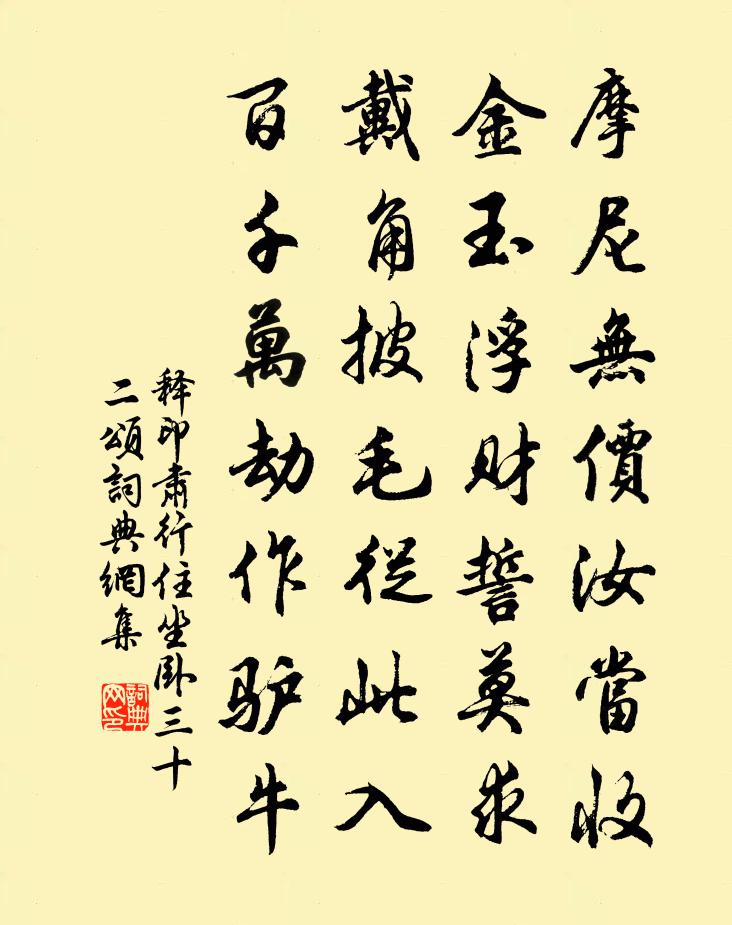 摩尼無價汝當收
金玉浮财誓莫求
戴角披毛從此入
百千萬劫作驴牛
释印肃行住坐卧三十
二頌詞典網集
詞典
网印